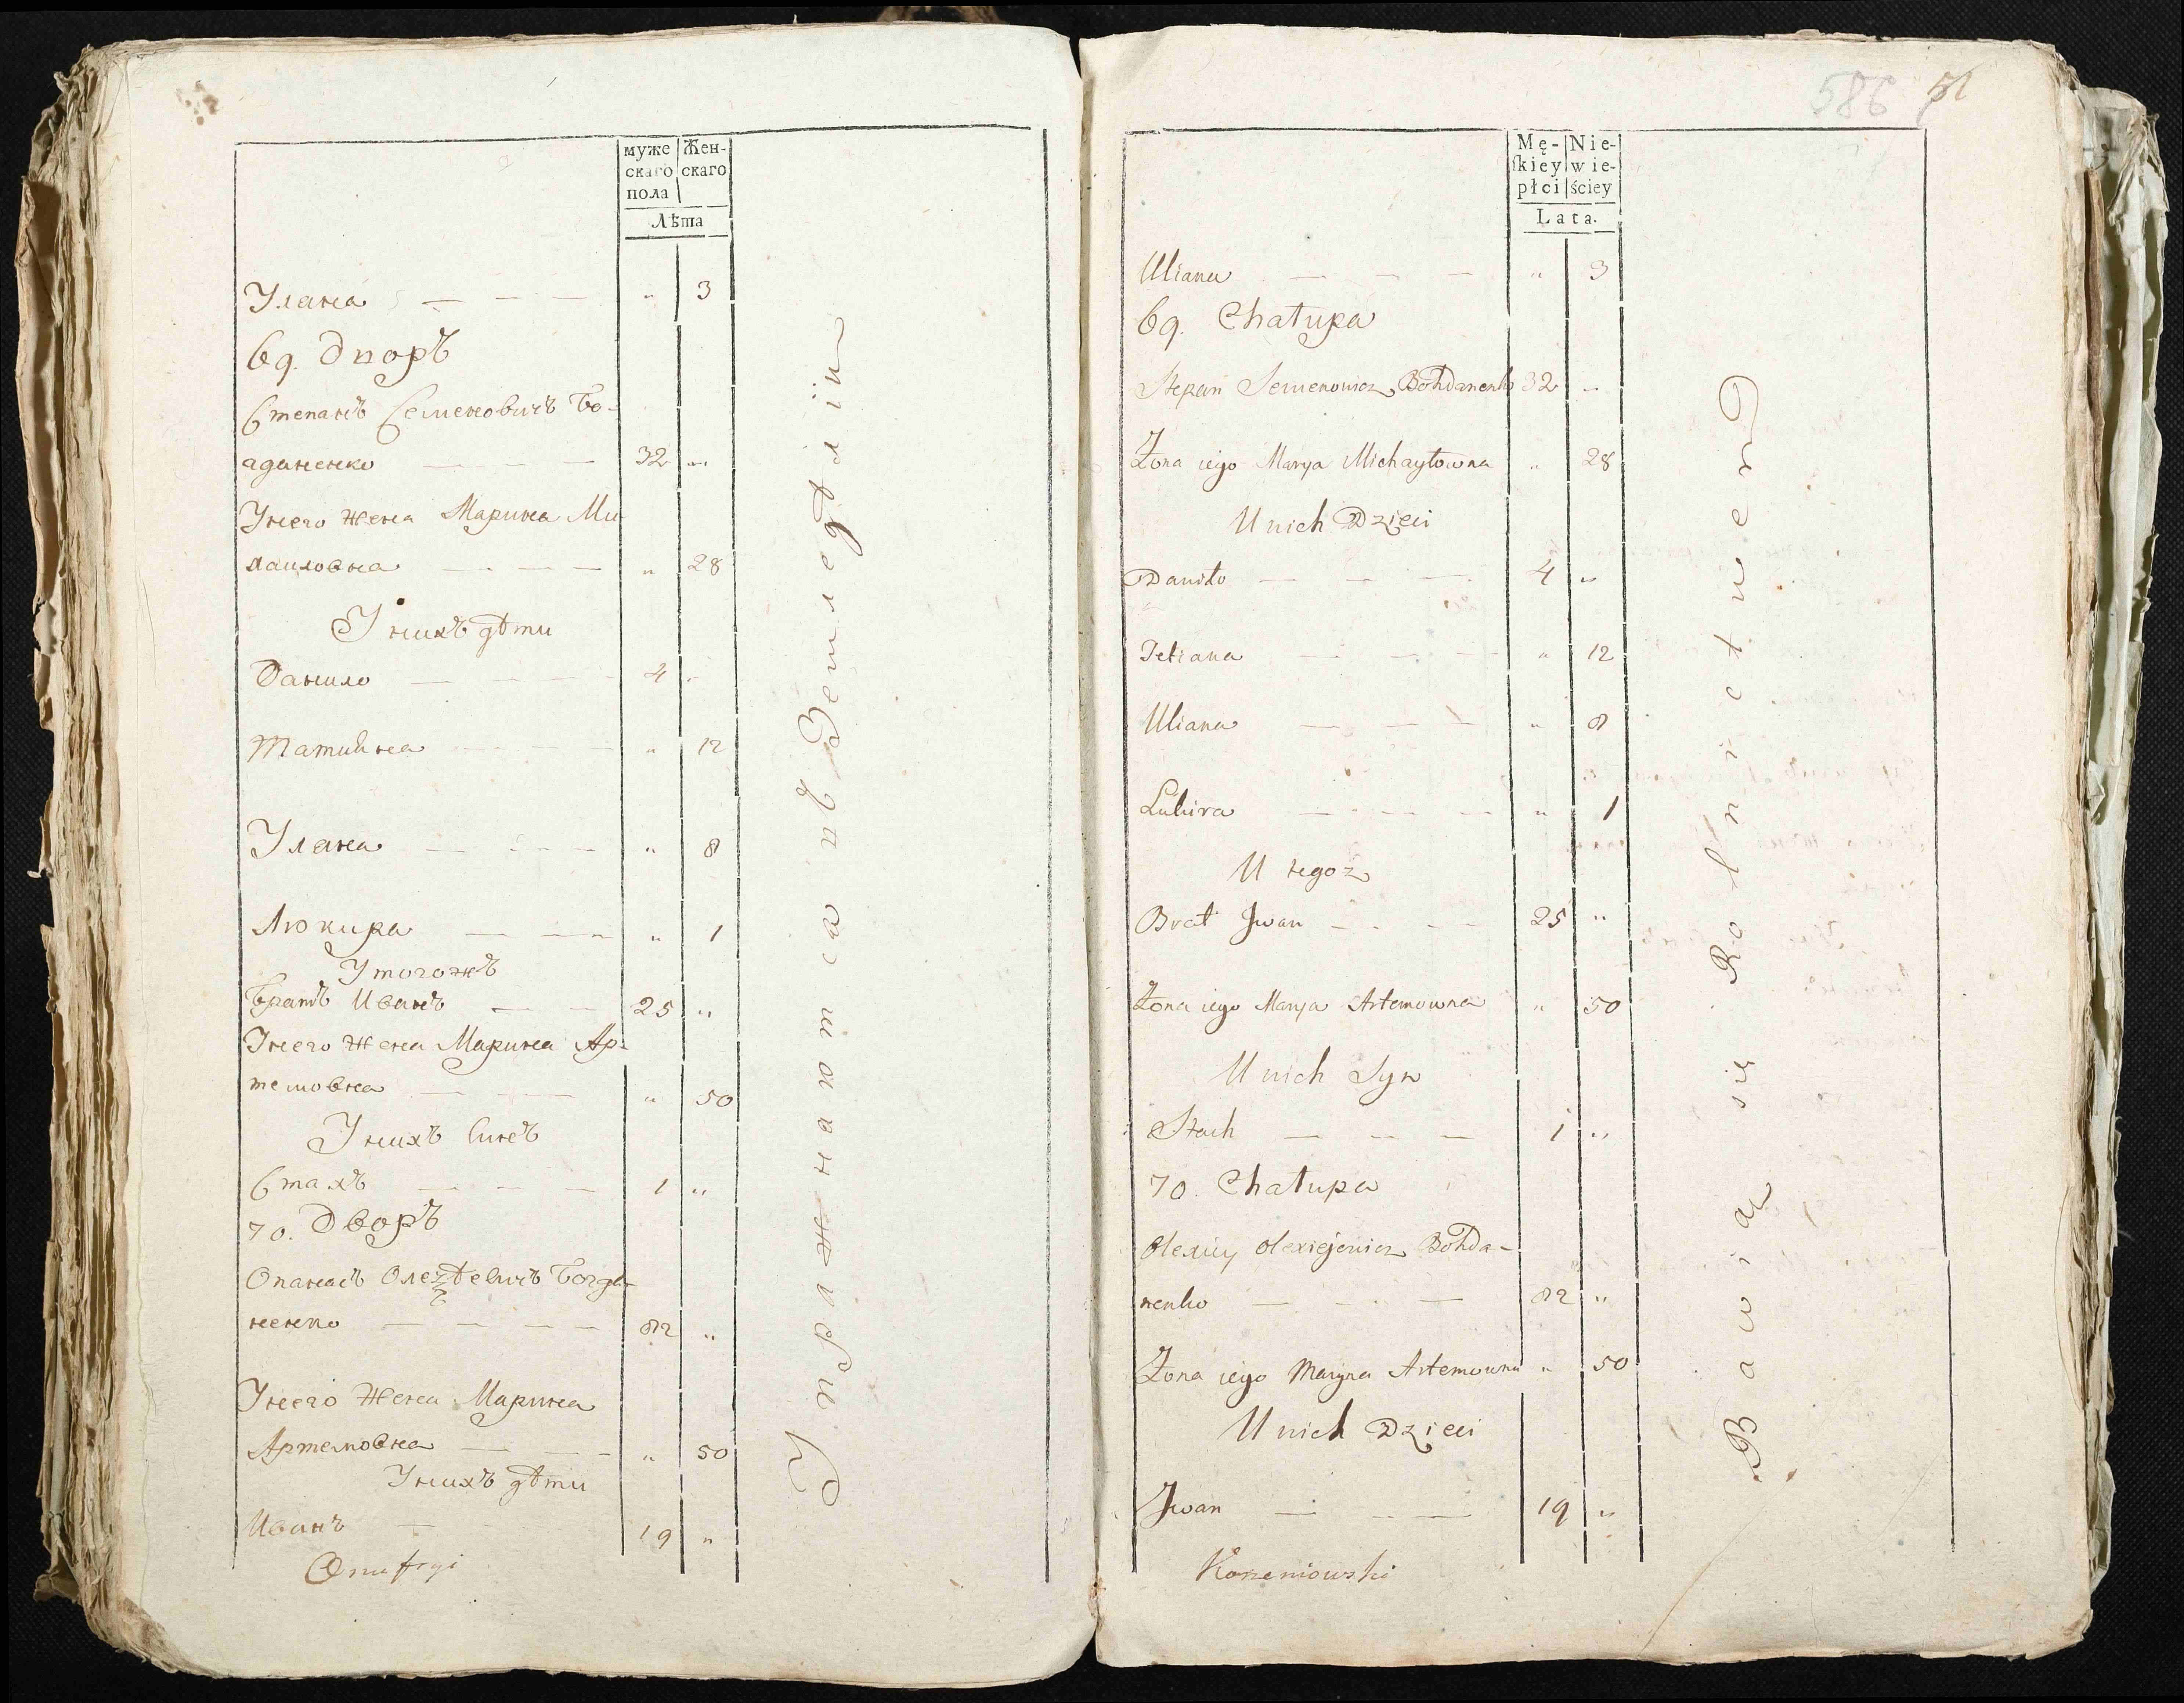 муже Жен-
скаго скаго
пола
Лѣта
Улана — — — " 3
69. Дворъ
Степанъ Семеновичъ Бо-
гданенко — — — 32 "
Унего жена Марина Ми-
хаиловна — — — " 28
У нихъ дѣти
Данило — — — 4 "
Татиѣна — — — " 12
Улана — — — " 8
Люкира — — — " 1
У тогожъ
братъ Иванъ — — 25 "
Унего жена Марина Ар-
темовна — — " 50
У нихъ синъ
Стахъ — — — 1 "
70. Дворъ
Опанасъ Олеѯѣевичъ Богда-
ненко — — — — 82 "
Унего жена Марина
Артемовна — — — " 50
У нихъ дѣти
Иванъ — 19 "
Onufryi
Упражнаютса въ Земледѣліи
586 51
Mę- Nie-
skiey wie-
płci ściey
Lata.
Uliana — — — " 3
69. Chałupa
Stepan Semenowicz Bohdanenko 32 "
Żona iego Marya Michayłowna " 28
U nich Dzieci
Daniło — — — 4 "
Tetiana — — — " 12
Uliana — — — " 8
Lukira — — — " 1
U tegoż
Brat Jwan — — — 25 "
Żona iego Marya Artemowna " 50
U nich Syn
Stach — — — 1 "
70. Chałupa
Olexiiy Olexiejewicz Bohda-
nenko — — — 82 "
Żona iego Maryna Artemowna " 50
U nich Dzieci
Jwan — — — 19 "
Korzeniowski
Bawią się Rolnictwem